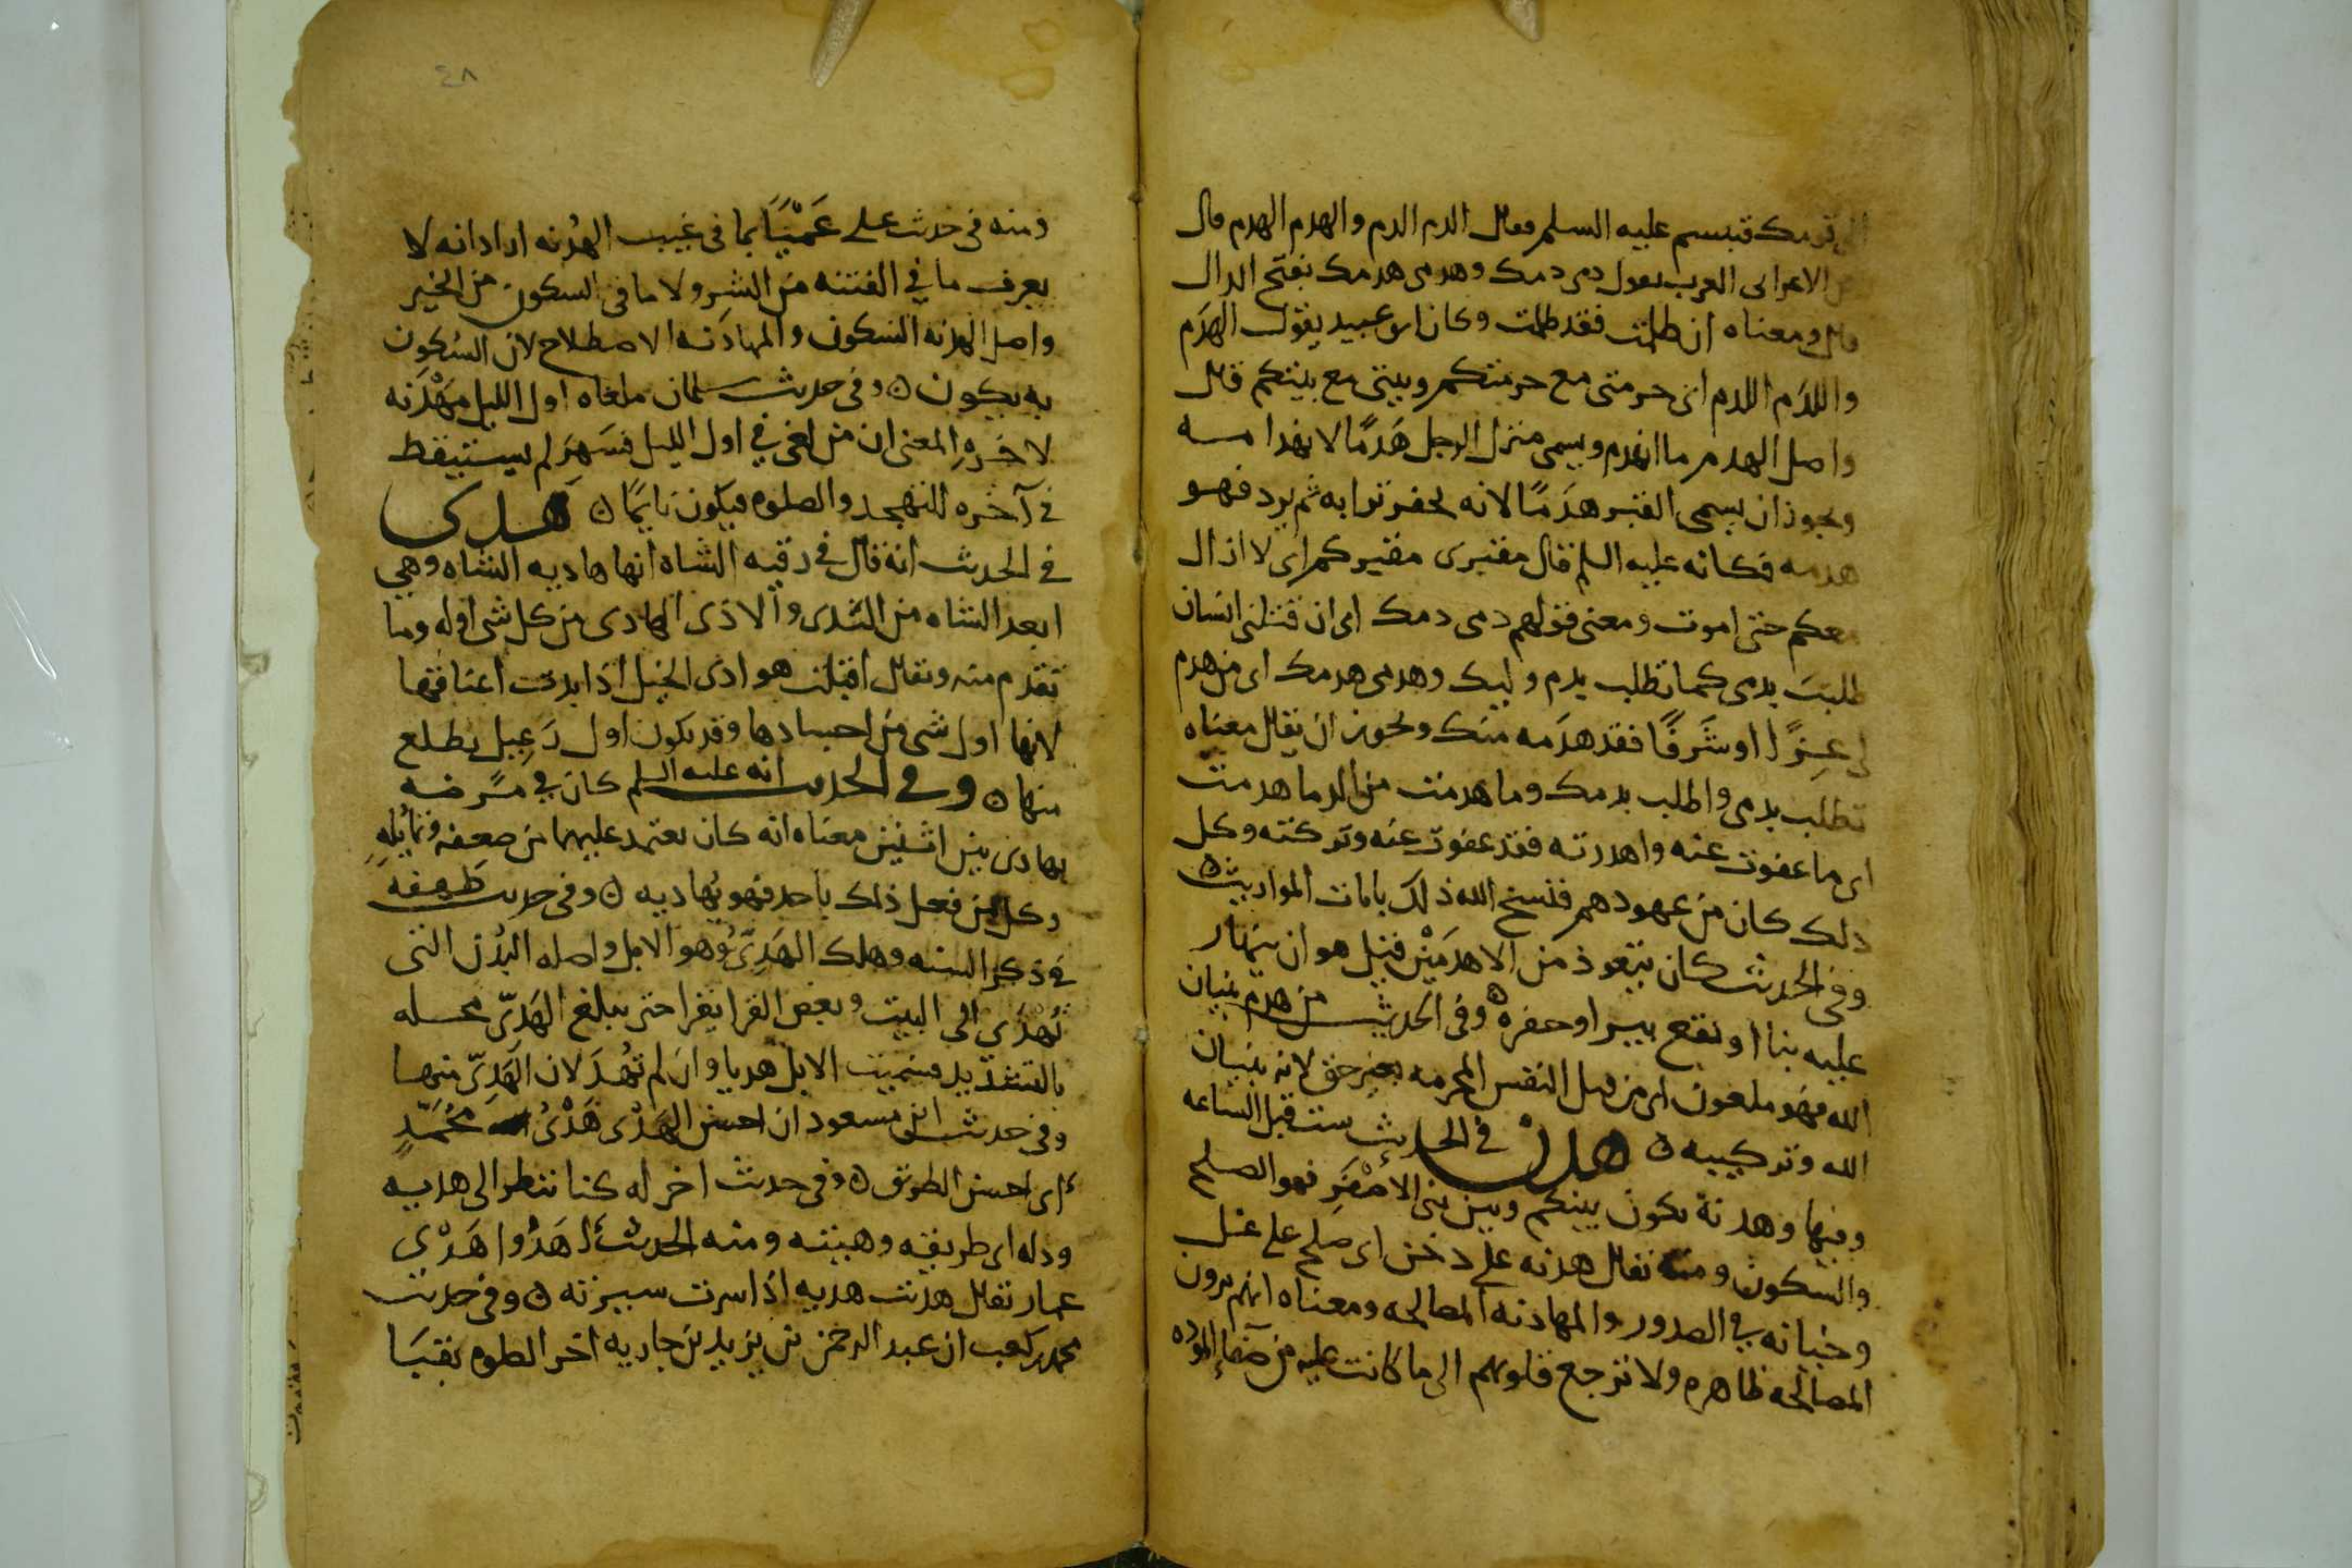 قومك فتبسم عليه السلم فقال الدم الدم والهدم الهدم قال
الاعرابي العرب تقول دمي دمك وهدمي هدمك بفتح الدال
قال ومعناه ان ظلمت فقد ظلمت وكان ابو عبيد يقول الهدَم
واللدَم اللدم اي حرمتي مع حرمتكم وبيتي مع بيتكم قال
واصل الهدم ما انهدم ويسمى منزل الرجل هَدمًا لانهدامه
ويجوز ان يسمى القبر هدَمًا لانه يحفر ترابه ثم يرد فهو
هدمه فكانه عليه السلم قال مقبري مقبركم اي لا ازال
معكم حتى اموت ومعنى قولهم دمي دمك اي ان قتلني انسان
طلبتَ بدمي كما تطلب بدم وليك وهدمي هدمك اي من هدم
لي عِزًا او شَرَفًا فقد هدَمه منك ويجوز ان يقال معناه
تطلب بدمي واطلب بدمك وما هدمت من الدما هدمت
اي ما عفوت عنه واهدرته فقد عفوت عنه وتركته وكل
ذلك كان من عهودهم فنسخ الله ذلك بايات المواريث ه
وفي الحديث كان يتعوذ من الاهدمَيْن قيل هو ان ينهار
عليه بنا او يقع بير او حفره ه وفي الحديث من هدم بنيان
الله فهو ملعون اي من قتل النفس المحرمه بغير حق لانه بنيان
الله وتركيبه ه هدن في الحديث ست قبل الساعه
وفيها وهدنة تكون بينكم وبين بني الأصْفَرِ فهو الصلح
والسكون ومنه يقال هدنه على دخن اي صلح على غل
وخيانه في الصدور والمهادنه المصالحه ومعناه انهم يرون
المصالحه ظاهره ولا ترجع قلوبهم الى ما كانت عليه من صفا المودة
٤٨
ومنه في حديث علي عَمْيَاَ بما في غيب الهُدنه اراد انه لا
يعرف ما في الفتنه من الشر ولا ما في السكون من الخير
واصل الهدنه السكون والمهادَنه الاصطلاح لان السكون
به يكون ه وفي حديث سلمان ملغاه اول الليل مَهْدَنه
لاخره المعنى ان من لغى في اول الليل فسَهرَ لم يستيقظ
في آخره للتهجد والصلوه فيكون نايمًا ه هَدى
في الحديث انه قال في رقبه الشاه انها هاديه الشاه وهي
ابعد الشاه من الثدى والاذى الهادي من كل شي اوله وما
تقدم منه ويقال اقبلت هوادي الخيل اذا بدت اعناقها
لانها اول شي من اجسادها وقد يكون اول رَعِيل يطلع
منها ه وفي الحديث انه عليه السلم كان في مَرضه
يهادى بين اثنين معناه انه كان يعتمد عليهما من ضعفه وتمايُله
وكل من فعل ذلك باحد فهو يُهاديه ه وفي حديث طَهفه
في ذكر السنه وهلك الهَدِيّ وهو الابل واصله البُدن التي
تُهْدَى الى البيت وبعض القرا يقرا حتى يبلغ الهَدِيّ محله
بالتشديد فسميت الابل هديا وان لم تُهْدَ لان الهَدِيّ منها
وفي حديث ابن مسعود ان احسن الهَدْي هَدْيُ مُحمّدٍ
أي احسن الطريق ه وفي حديث اخر له كنا ننظر الى هديه
ودله اي طريقه وهيئته ومنه الحديث اهْدُوا هَدْي
عمار يقال هديت هديه اذا سرت سيرته ه وفي حديث
محمد بن كعب ان عبد الرحمن بن يزيد بن جاريه اخر الظهر بقبَا